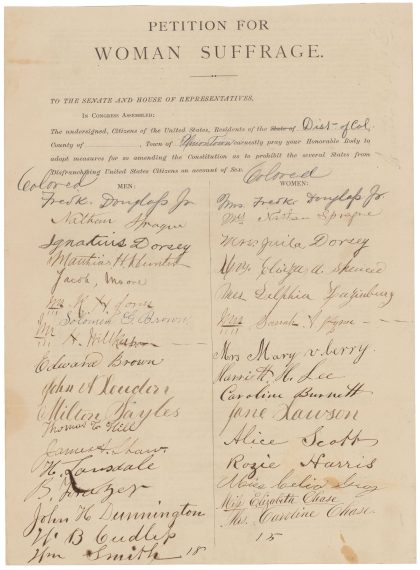 PETITION FOR
WOMAN SUFFRAGE.
TO THE SENATE AND HOUSE OF REPRESENTATIVES,
IN CONGRESS ASSEMBLED:
The undersigned, Citizens of the United States, Residents of the State of Dist. of Col.
County of , Town of Uniontown earnestly pray your Honorable Body to
adapt measures for so amending the Constitution as to prohibit the several States from
Disfranchising United States Citizens on account of Sex.
Colored Colored
MEN: WOMEN:
Fredk Douglass Jr Mrs. Fredk Douglass Jr
Nathan Sprague Sprague
Ignatius Dorsey Mrs Dorsey
H. Hunter Mrs. Eliza A Spencer
Jacob Moore Mrs Delphia
Solomon G. Brown Mrs Sarah A
Mrs Mary V Berry
Edward Brown Harriett H. Lee
John A Caroline Burnett
Milton Jane Lawson
Thomas Alice Scott
James Shaw Rozie Harris
H. Lansdale Celia
B. Miss Elizabeth Chase
John H Dunnington Mrs. Caroline Chase
W. B Cudlip 15
Wm Smith 18